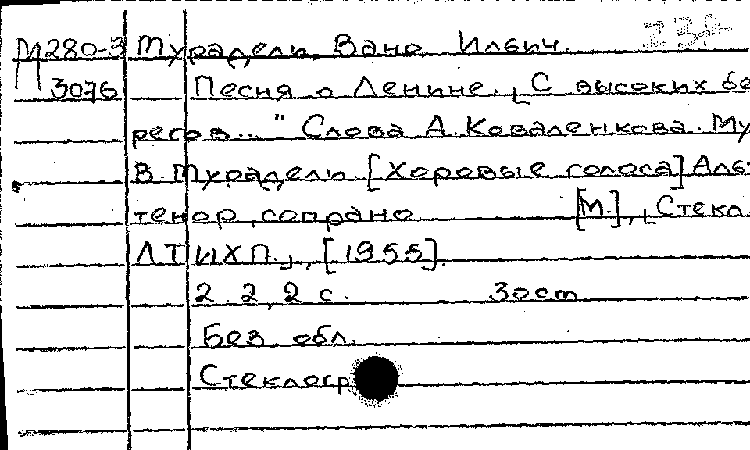 М280-3 Мурадели, Вано Ильич.
3076 Песня о Ленине. „С высоких бе
регов..." Слова А. Коваленкова. Му
В. Мурадели [Хоровые голоса] Аль
тенор, сопрано [М.], Стекл.
ЛТИХП., [1955].
2, 2, 2 с. 30 см
Без обл.
Стеклогр